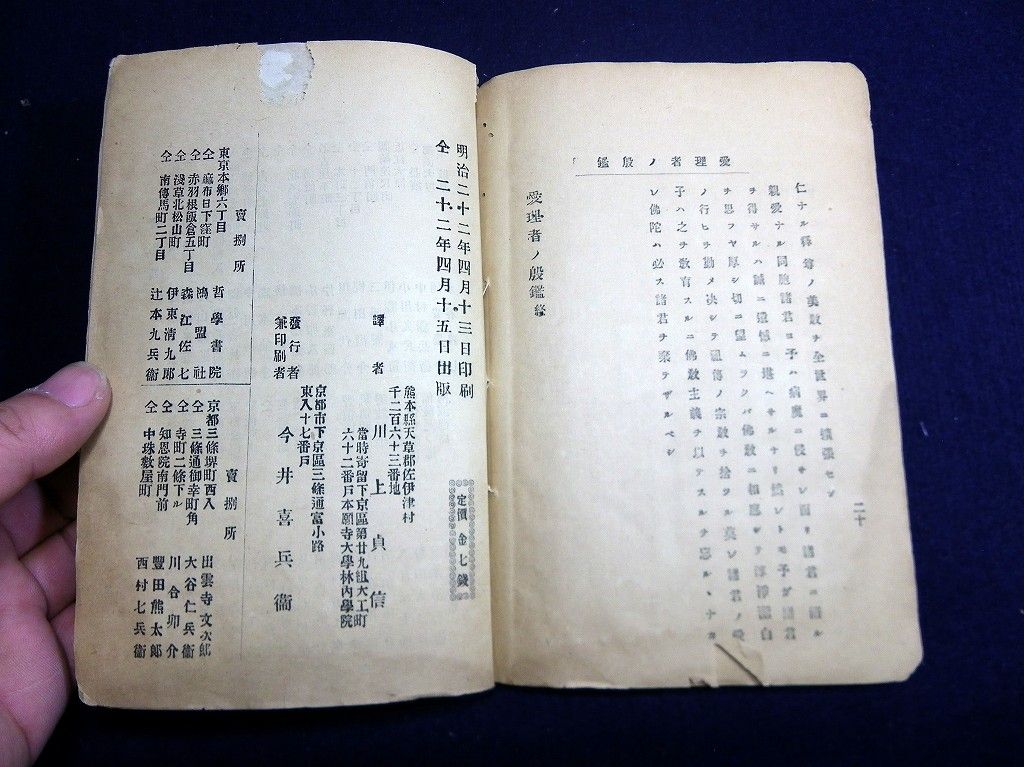 愛理者ノ殷鑑
二十
仁ナル釋尊ノ美教チ全世界ニ擴張セン
親愛ナル同胞諸君ヨ予ハ病魔ニ侵サレ面リ諸君ニ謁ル
チ得サルハ誠ニ遺憾ニ堪ヘサルナリ然レトモ予ガ諸君
チ思フヤ厚シ切ニ望ムラクバ佛教ニ相應シテ淨潔白
ノ行ヒチ勤メ决シテ祖傳ノ宗教チ捨ツル莫レ諸君ノ愛
子ハ之チ教育スルニ佛教主義チ以テスルチ忘ルヽナカ
レ佛陀ハ必ス諸君チ棄テザルベシ
愛理者ノ殷鑑終
明治二十二年四月十三日印刷
仝 二十二年四月十五日出版
定價金七錢
熊本縣天草郡佐伊津村
千二百六十三番地
譯者 川上貞信
當時寄留下京區第廿九組大工町
六十二番戸本願寺大學林内學院
京都市下京區三條通富小路
東入十七番戸
發行者
兼印刷者 今井喜兵衞
賣捌所
東京本郷六丁目 哲學書院
仝 麻布日下窪町 鴻盟社
仝 赤羽根飯倉五丁目 森江佐七
仝 淺草北松山町 伊東清九郎
仝 南傳馬町二丁目 辻本九兵衞
賣捌所
京都三條堺町西入 出雲寺文次郎
仝 三條通御幸町角 大谷仁兵衞
仝 寺町二條下ル 川合卯介
仝 知恩院南門前 豐田熊太郎
仝 中珠數屋町 西村七兵衞